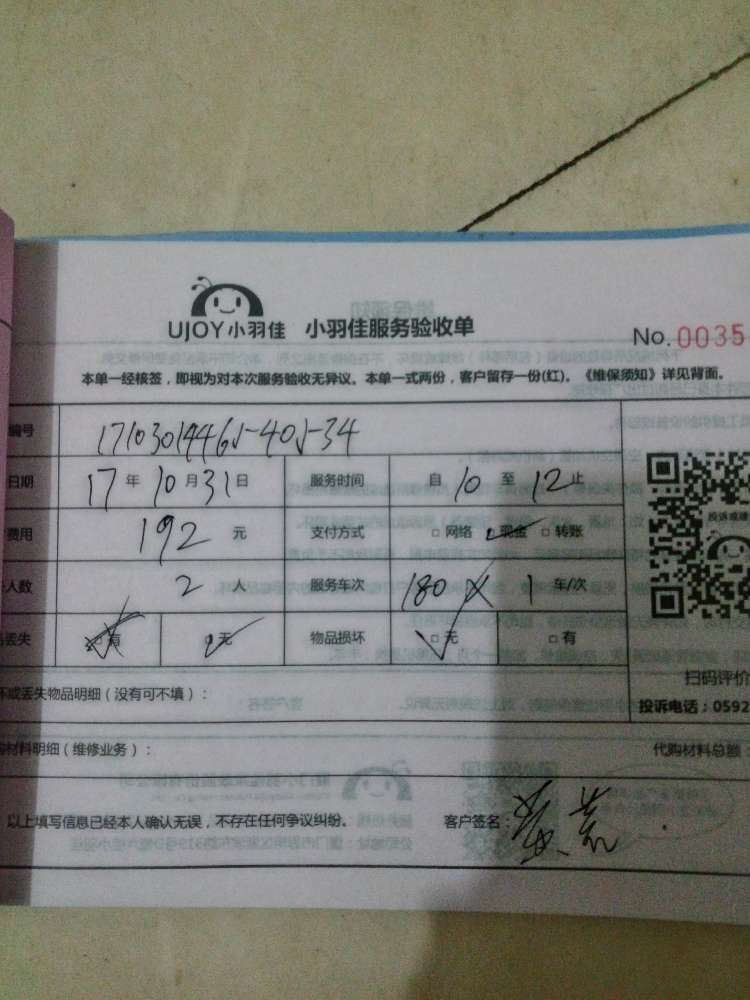 UJOY小羽佳 小羽佳服务验收单
No.0035
本单一经核签，即视为对本次服务验收无异议。本单一式两份，客户留存一份(红)。《维保须知》详见背面。
编号
日期 17年10月31日 服务时间 自10至12止
费用 192元 支付方式 □网络 □现金 □转账
人数 2人 服务车次 180 1车/次
丢失 □有 □无 物品损坏 □无 □有
投诉或建
扫码评价
坏或丢失物品明细（没有可不填）：
投诉电话：0592
购材料明细（维修业务）：
代购材料总额：
以上填写信息已经本人确认无误，不存在任何争议纠纷。 客户签名：